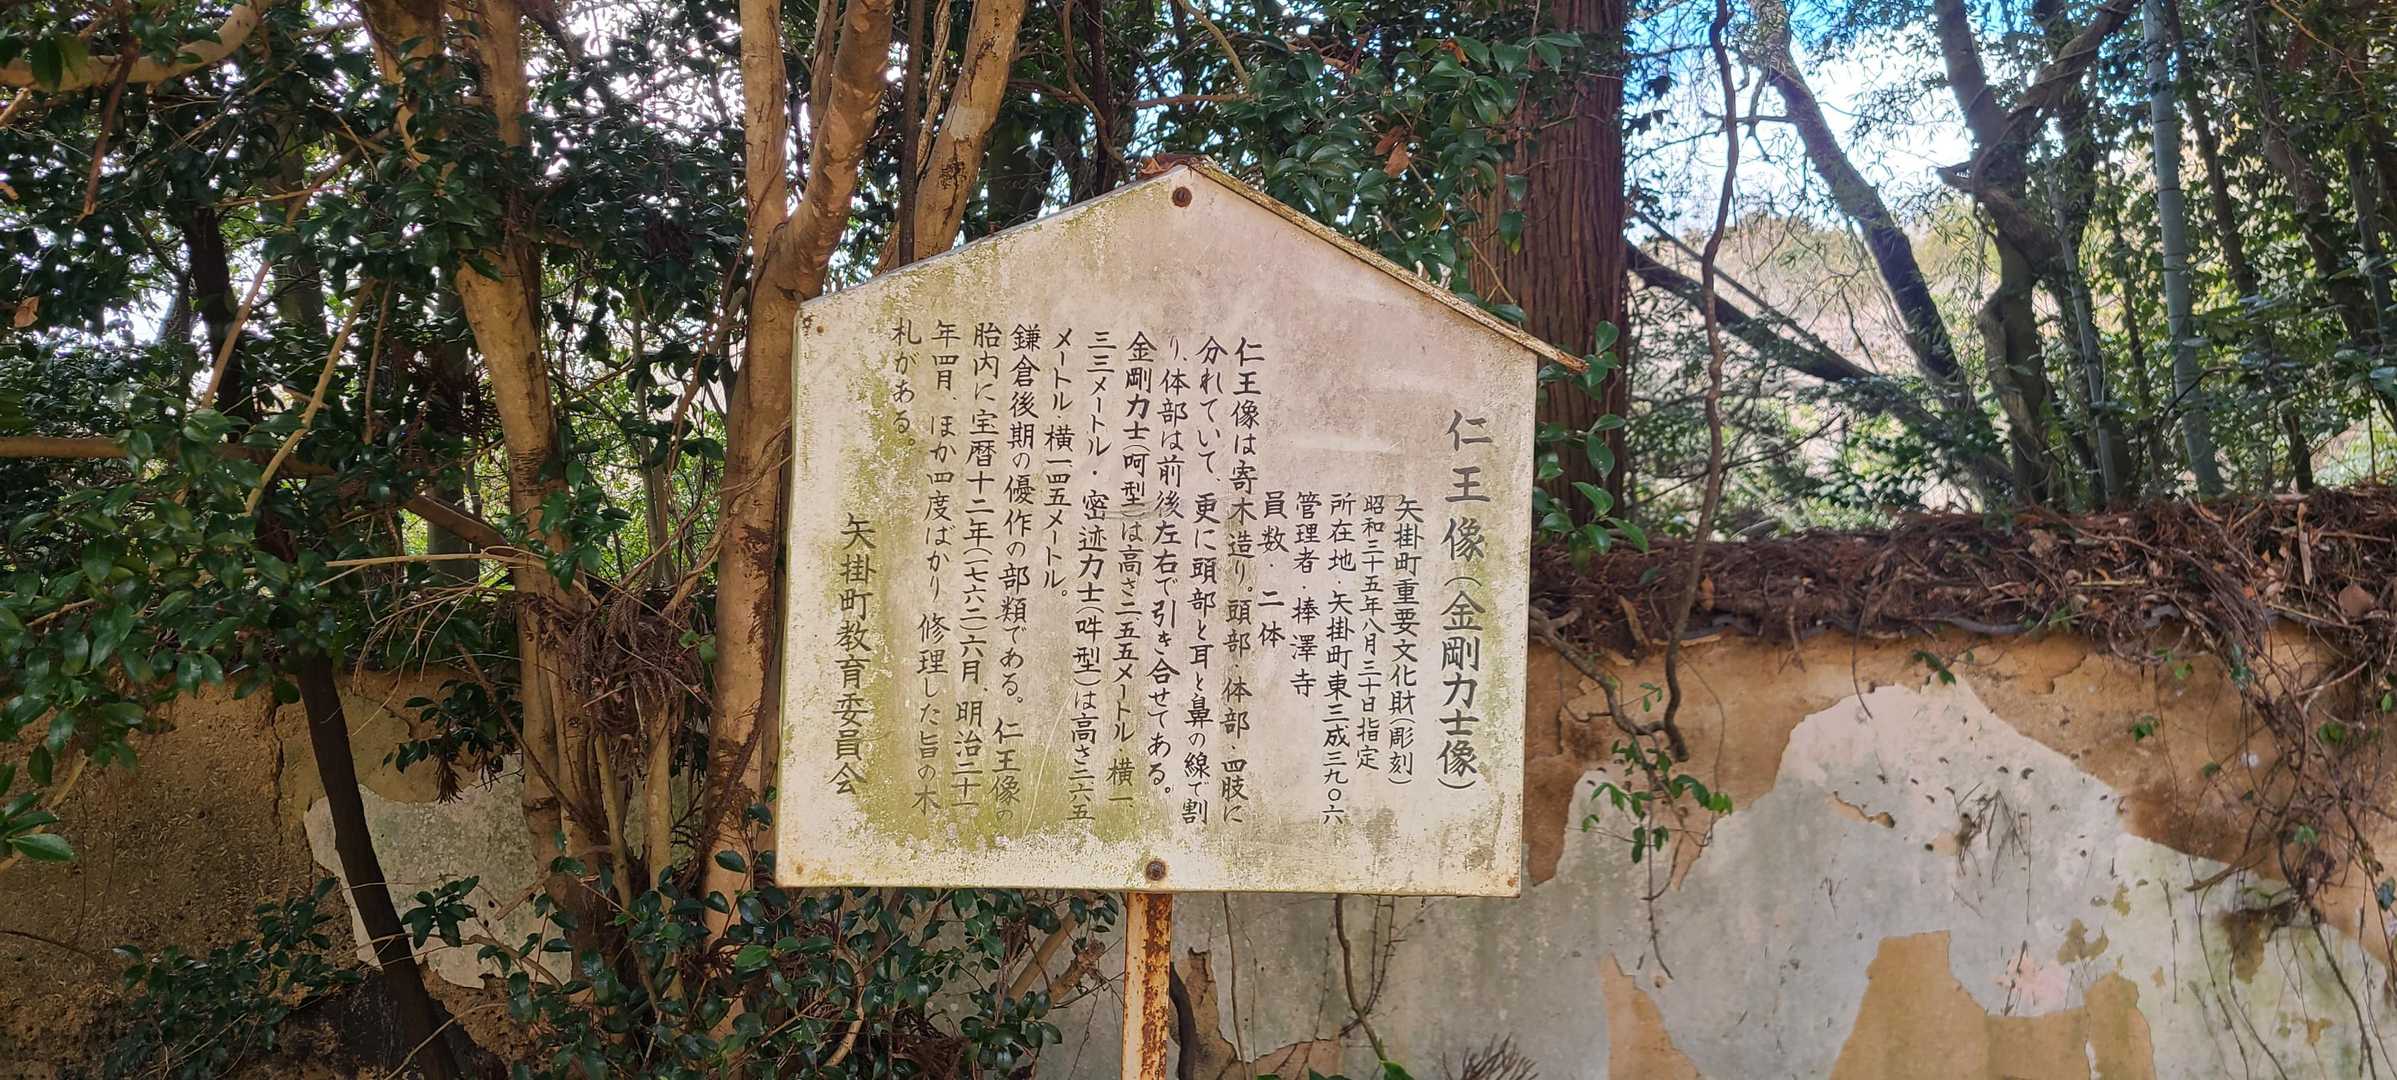 仁王像（金剛力士像）
矢掛町重要文化財（彫刻）
昭和三十五年八月三十日指定
所在地・矢掛町東三成三九〇六
管理者・捧澤寺
員数・二体
仁王像は寄木造り。頭部・体部・四肢に
分れていて、更に頭部と耳と鼻の線で割
り、体部は前後左右で引き合せてある。
金剛力士（呵型）は高さ二五五メートル・横一
三三メートル・密迹力士（吽型）は高さ二六五
メートル横一四五メートル。
鎌倉後期の優作の部類である。仁王像の
胎内に宝暦十二年（一七六二）六月、明治二十一
年四月、ほか四度ばかり修理した旨の木
札がある。
矢掛町教育委員会